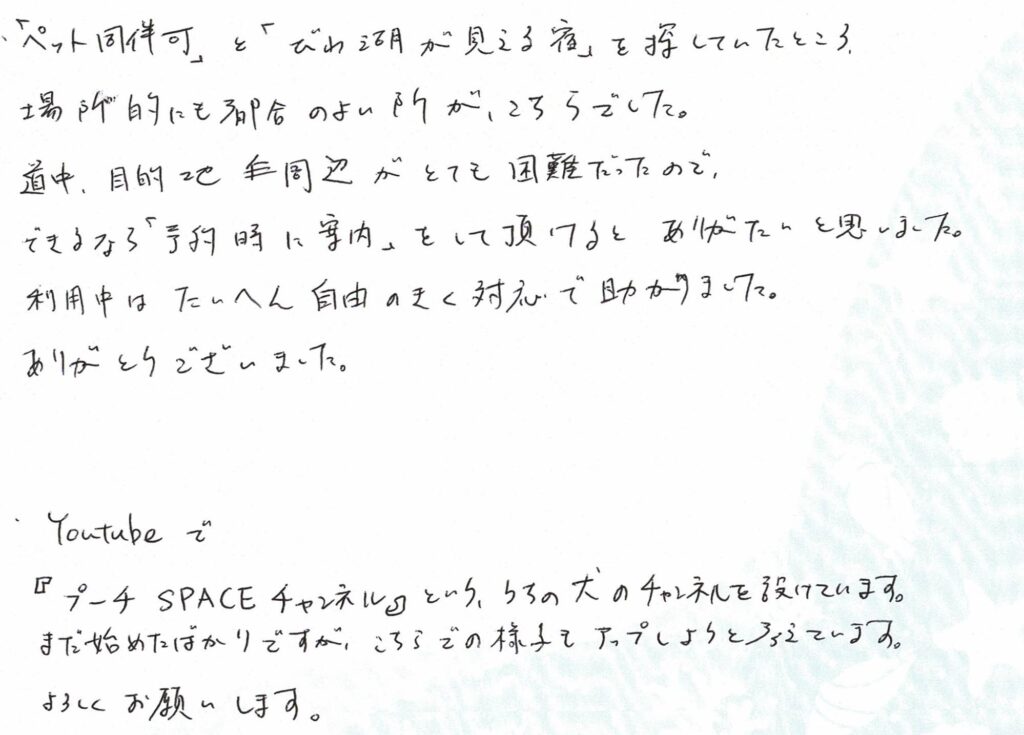 「ペット同伴可」と「びわ湖が見える宿」を探していたところ、
場所的にも都合のよい所が、こちらでした。
道中、目的地周辺がとても困難だったので、
できるなら「予約時に案内」をして頂けると ありがたいと思いました。
利用中は たいへん 自由のきく対応で助かりました。
ありがとうございました。
Youtube で
『プーチ SPACE チャンネル』という、うちの犬のチャンネルを設けています。
まだ始めたばかりですが、こちらでの様子をアップしようと考えています。
よろしくお願いします。